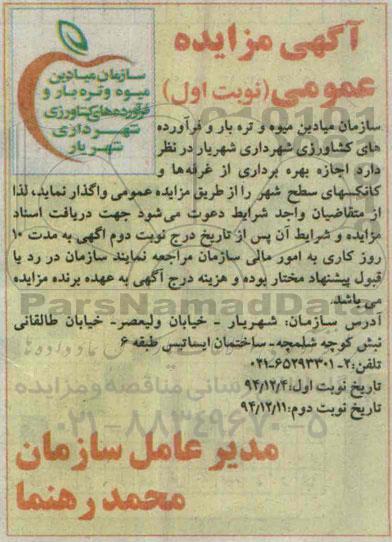 آگهی مزایده
عمومی (نوبت اول)
سازمان میادین
میوه و تره بار و
فرآورده‌های کشاورزی
شهرداری
شهریار
سازمان میادین میوه و تره بار و فرآورده
های کشاورزی شهرداری شهریار در نظر
دارد اجازه بهره برداری از غرفه‌ها و
کانکسهای سطح شهر را از طریق مزایده عمومی واگذار نماید، لذا
از متقاضیان واجد شرایط دعوت می‌شود جهت دریافت اسناد
مزایده و شرایط آن پس از تاریخ درج نوبت دوم اگهی به مدت ۱۰
روز کاری به امور مالی سازمان مراجعه نمایند سازمان در رد یا
قبول پیشنهاد مختار بوده و هزینه درج آگهی به عهده برنده مزایده
می باشد.
آدرس سازمان: شهریار - خیابان ولیعصر- خیابان طالقانی
نبش کوچه شلمچه- ساختمان ایساتیس طبقه ۶
تلفن: ۲-۶۵۲۹۳۳۰۱-۰۲۱
تاریخ نوبت اول: ۹۴/۱۲/۴
تاریخ نوبت دوم: ۹۴/۱۲/۱۱
مدیر عامل سازمان
محمد رهنما
ParsNamadData
۰۲۱-۸۸۳۴۹۶۷۰-۵